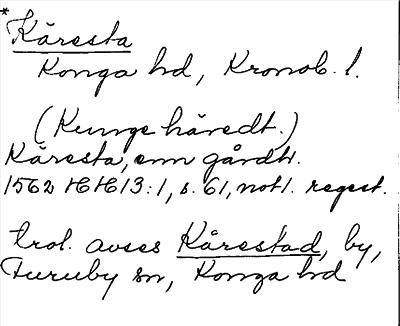 * Käresta
Konga hd, Kronob. l.
(Kunge häredt.)
Käresta, enn gårdh.
1562 HH13:1, s. 61, not1. regest.
trol. avses Kårestad, by,
Furuby sn, Konga hd